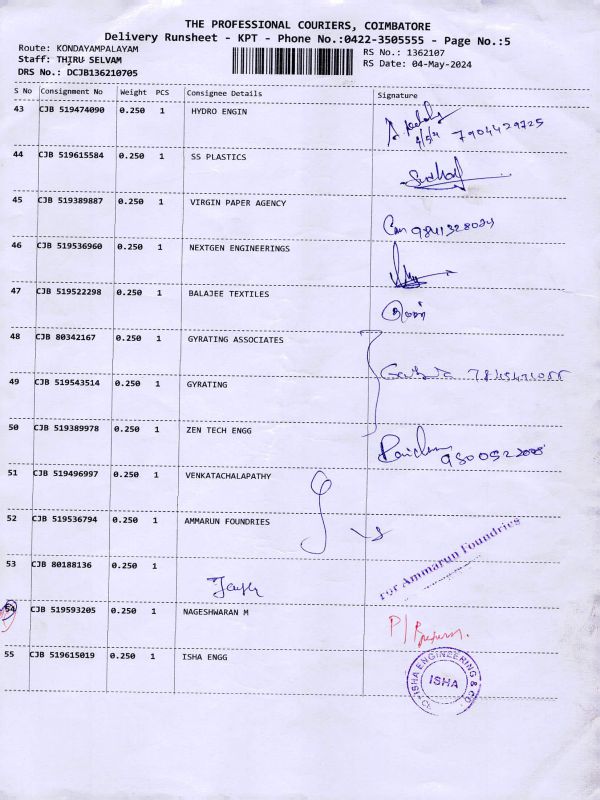 THE PROFESSIONAL COURIERS, COIMBATORE
Delivery Runsheet - KPT - Phone No.:0422-3505555 - Page No.:5
Route: KONDAYAMPALAYAM
RS No.: 1362107
Staff: THIRU SELVAM
RS Date: 04-May-2024
DRS No.: DCJB136210705
S No Consignment No Weight PCS Consignee Details Signature
43 CJB 519474090 0.250 1 HYDRO ENGIN
7904429725
44 CJB 519615584 0.250 1 SS PLASTICS
45 CJB 519389887 0.250 1 VIRGIN PAPER AGENCY
9841328024
46 CJB 519536960 0.250 1 NEXTGEN ENGINEERINGS
47 CJB 519522298 0.250 1 BALAJEE TEXTILES
48 CJB 80342167 0.250 1 GYRATING ASSOCIATES
49 CJB 519543514 0.250 1 GYRATING
50 CJB 519389978 0.250 1 ZEN TECH ENGG
51 CJB 519496997 0.250 1 VENKATACHALAPATHY
52 CJB 519536794 0.250 1 AMMARUN FOUNDRIES
for Ammarun Foundries
53 CJB 80188136 0.250 1
54 CJB 519593205 0.250 1 NAGESHWARAN M
55 CJB 519615019 0.250 1 ISHA ENGG
ISHA ENGINEERING & CO
ISHA